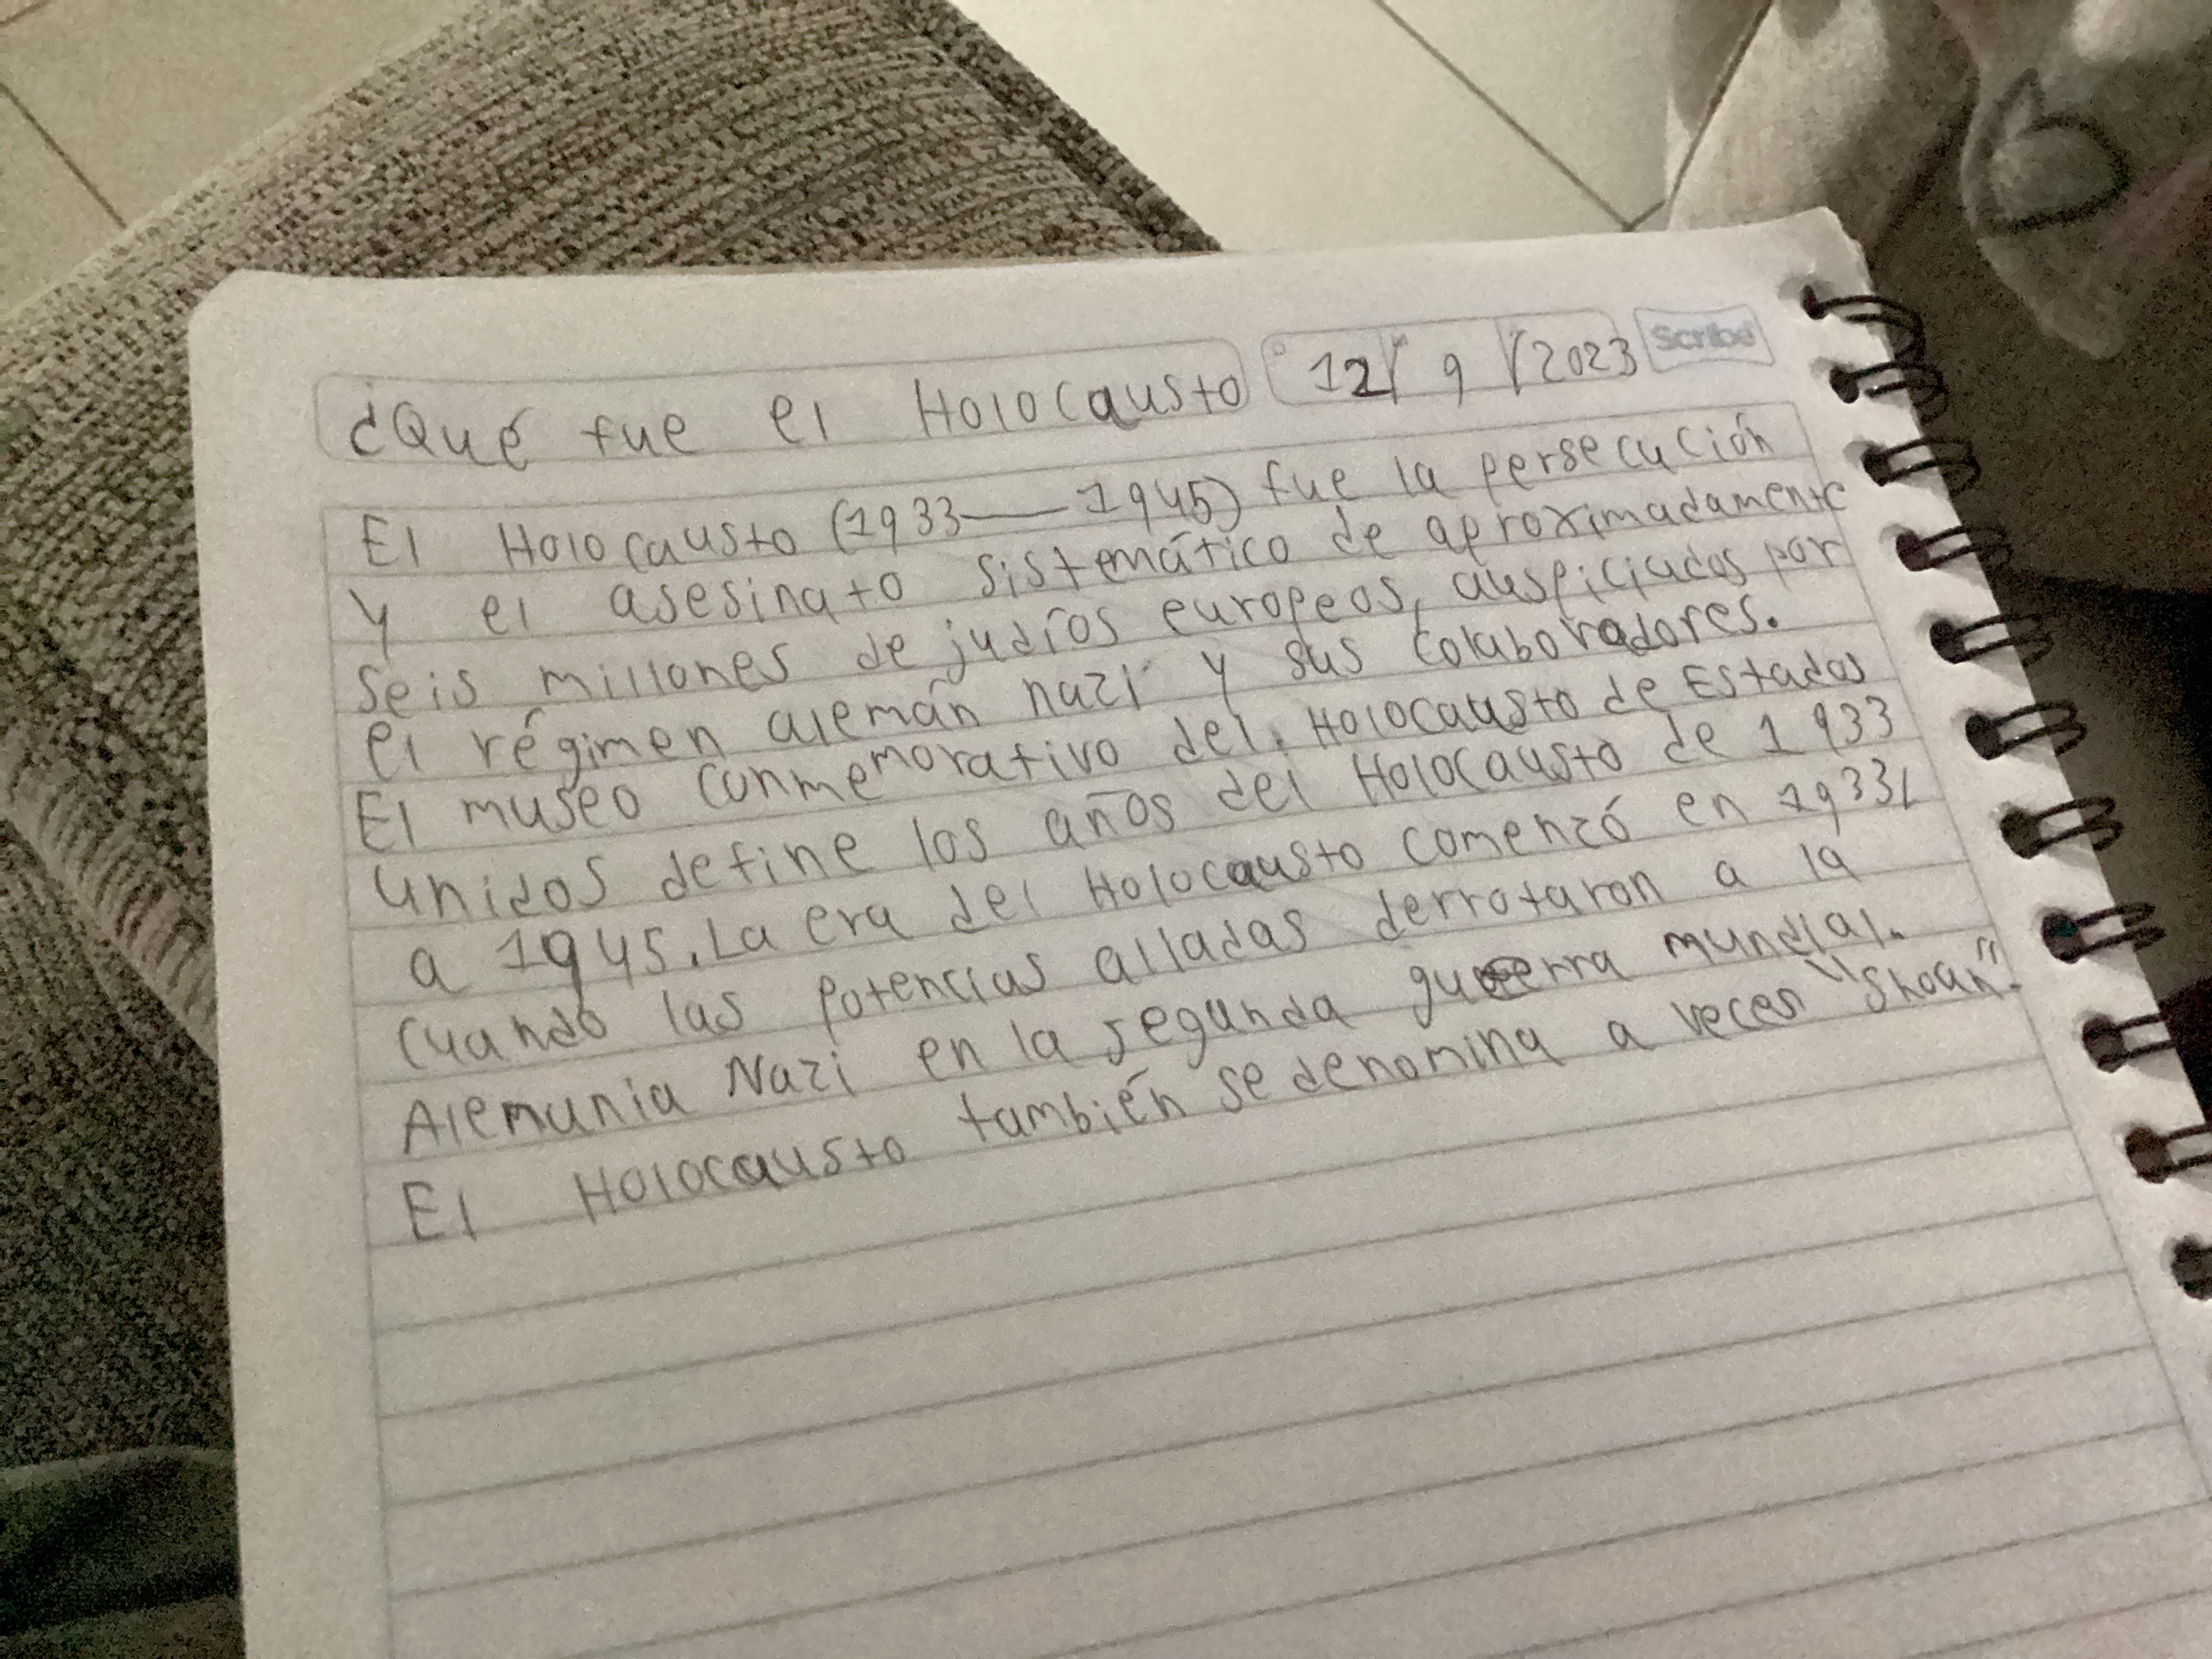 ¿Qué fue el Holocausto 12/ 9 /2023 Scribe
El Holocausto (1933—1945) fue la persecución
y el asesinato sistemático de aproximadamente
seis millones de judíos europeos, auspiciados por
el régimen alemán nazi y sus colaboradores.
El museo conmemorativo del. Holocausto de Estados
unidos define los años del Holocausto de 1933
a 1945. La era del Holocausto comenzó en 1933,
cuando las potencias alladas derrotaron a la
Alemania Nazi en la segunda guerra mundial.
El Holocausto también se denomina a veces "Shoah".